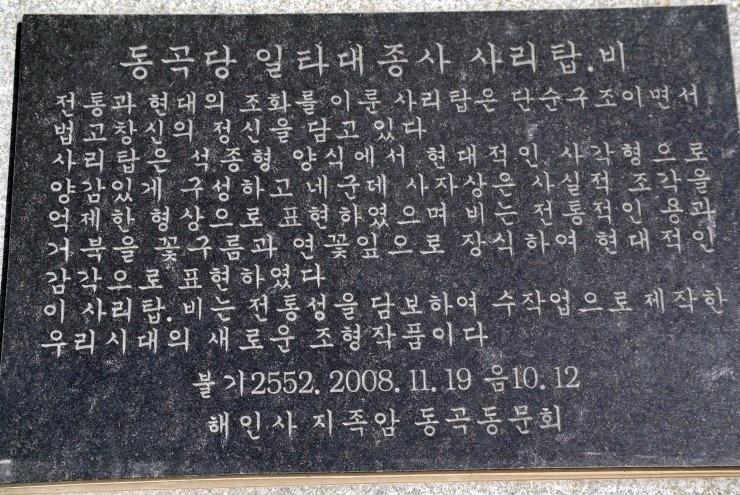 동곡당 일타대종사 사리탑.비
전통과 현대의 조화를 이룬 사리탑은 단순구조이면서
법고창신의 정신을 담고 있다
사리탑은 석종형 양식에서 현대적인 사각형으로
양감있게 구성하고 네군데 사자상은 사실적 조각을
억제한 형상으로 표현하였으며 비는 전통적인 용과
거북을 꽃구름과 연꽃잎으로 장식하여 현대적인
감각으로 표현하였다
이 사리탑.비는 전통성을 담보하여 수작업으로 제작한
우리시대의 새로운 조형작품이다
불기2552. 2008. 11. 19 음10. 12
해인사 지족암 동곡동문회